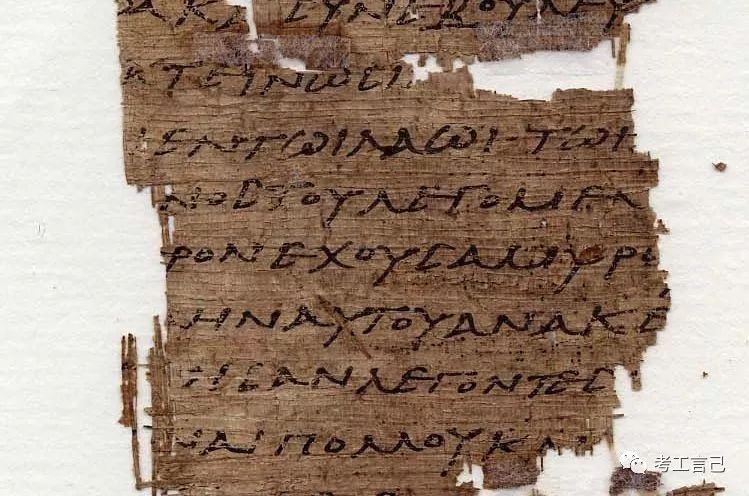 ΑΚΑ ϹΥΝΕΒΟΥΛΕΥ
ΚΤΕΙΝΩϹΙ
ΕΝΤΩΙΛΑΩΙ·ΤΩΙ
ΝΟϹΤΟΥΛΕΓΟΜΕΝ
ΡΟΝΕΧΟΥϹΑΜΥΡΟ
ΛΗΝΑΥΤΟΥΑΝΑΚΕ
ΗϹΑΝΛΕΓΟΝΤΕϹ
ΝΑΙΠΟΛΛΟΥΚΑΙ
考工言己